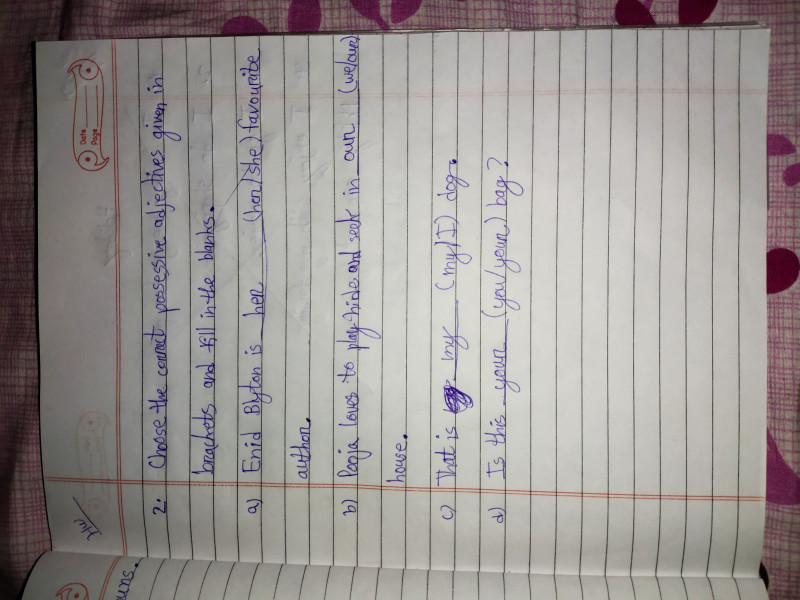 Date
Page
2. Choose the correct possessive adjectives given in
brackets and fill in the blanks.
a) Enid Blyton is her (her/she) favourite
author.
b) Pooja loves to play hide and seek in our (we/our)
house.
c) That is my (my/I) dog.
d) Is this your (you/your) bag?
uns.